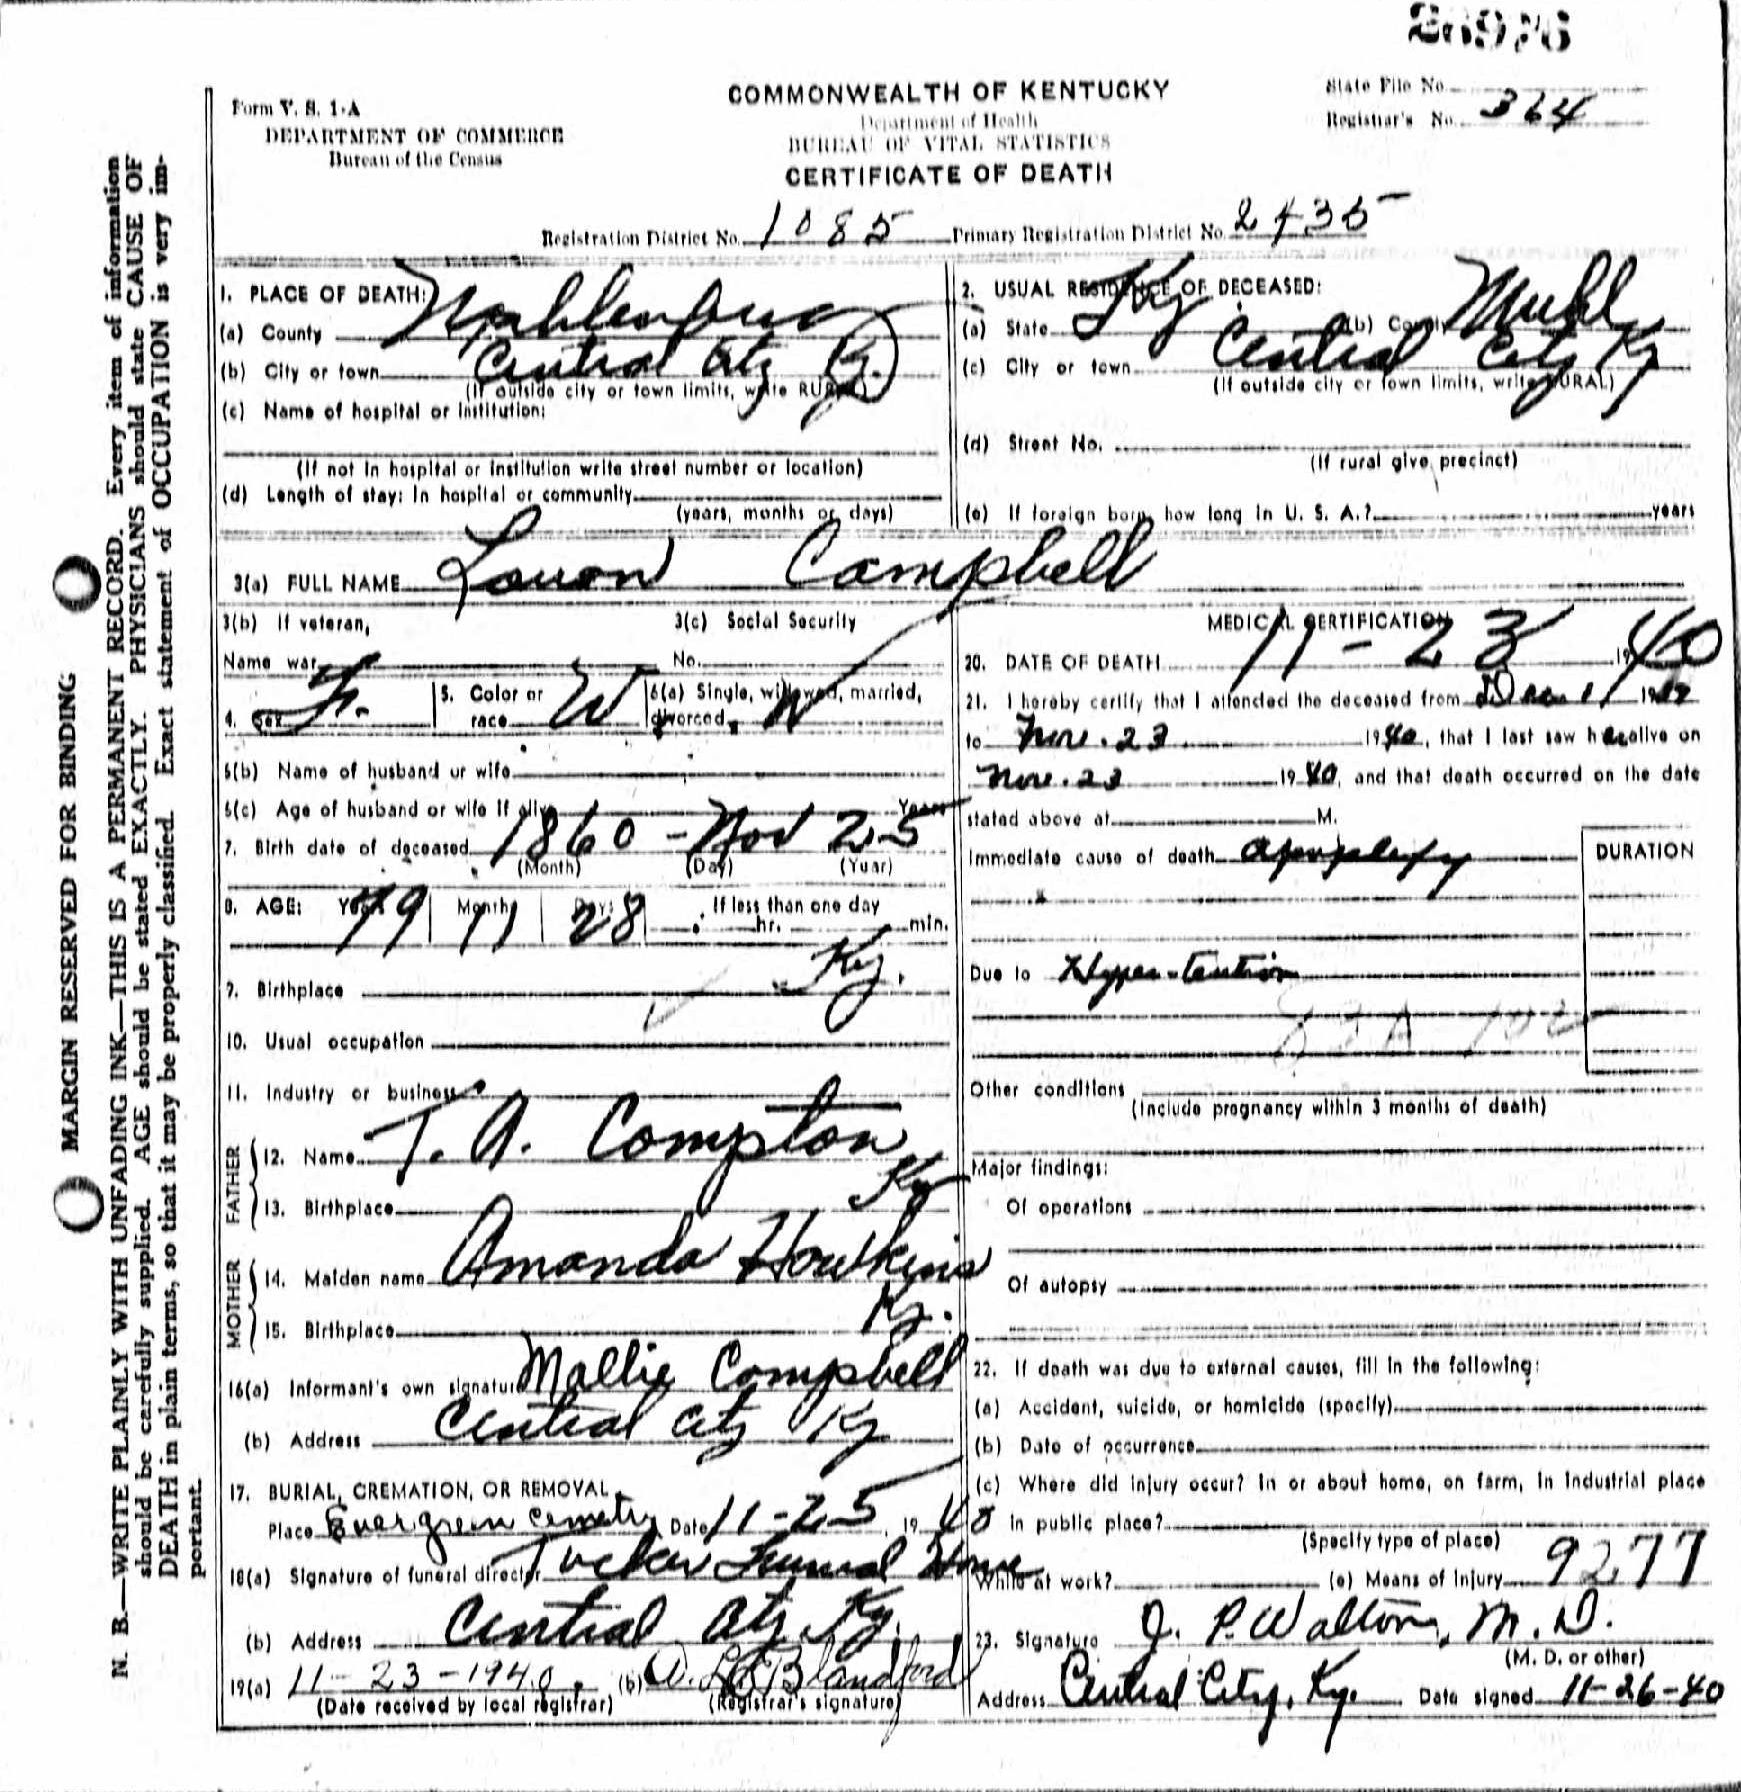 Form V. S. 1-A
DEPARTMENT OF COMMERCE
Bureau of the Census
COMMONWEALTH OF KENTUCKY
Department of Health
BUREAU OF VITAL STATISTICS
CERTIFICATE OF DEATH
State File No.
Registrar's No. 364
Registration District No. 1085 Primary Registration District No. 2435
MARGIN RESERVED FOR BINDING
N. B.—WRITE PLAINLY WITH UNFADING INK—THIS IS A PERMANENT RECORD. Every item of information
should be carefully supplied. AGE should be stated EXACTLY. PHYSICIANS should state CAUSE OF
DEATH in plain terms, so that it may be properly classified. Exact statement of OCCUPATION is very im-
portant.
1. PLACE OF DEATH:
(a) County Muhlenburg
(b) City or town Central City Ky.
(If outside city or town limits, write RURAL)
(c) Name of hospital or institution:
(If not in hospital or institution write street number or location)
(d) Length of stay: In hospital or community
(years, months or days)
2. USUAL RESIDENCE OF DECEASED:
(a) State Ky (b) County Muhl
(c) City or town Central City Ky
(If outside city or town limits, write RURAL)
(d) Street No.
(If rural give precinct)
(e) If foreign born, how long in U. S. A.? years
3(a) FULL NAME Campbell
3(b) If veteran,
Name war
3(c) Social Security
No.
4. Sex F. 5. Color or race W 6(a) Single, widowed, married, divorced, W
6(b) Name of husband or wife
6(c) Age of husband or wife if alive Years
7. Birth date of deceased 1860 - Nov 25
(Month) (Day) (Year)
8. AGE: Years 79 Months 11 Days 28 If less than one day
hr. min.
9. Birthplace Ky.
10. Usual occupation
11. Industry or business
FATHER
12. Name T. A. Compton
13. Birthplace Ky
MOTHER
14. Maiden name Amanda Howkins
15. Birthplace Ky.
16(a) Informant's own signature Mollie Campbell
(b) Address Central City Ky
17. BURIAL, CREMATION, OR REMOVAL
Place Evergreen Cemetry Date 11-25, 1940
18(a) Signature of funeral director Tucker Funeral Home
(b) Address Central City Ky.
19(a) 11-23-1940. (b) Blandford
(Date received by local registrar) (Registrar's signature)
MEDICAL CERTIFICATION
20. DATE OF DEATH 11-23 1940
21. I hereby certify that I attended the deceased from
to Nov. 23 1940, that I last saw her alive on
Nov. 23 1940, and that death occurred on the date
stated above at M.
Immediate cause of death apoplexy
DURATION
Due to Hyper-tention
Other conditions
(Include pregnancy within 3 months of death)
Major findings:
Of operations
Of autopsy
22. If death was due to external causes, fill in the following:
(a) Accident, suicide, or homicide (specify)
(b) Date of occurrence
(c) Where did injury occur? In or about home, on farm, in industrial place
in public place?
(Specify type of place)
While at work? (e) Means of injury 9277
23. Signature J. P. Walton, M. D.
(M. D. or other)
Address Central City, Ky. Date signed 11-26-40